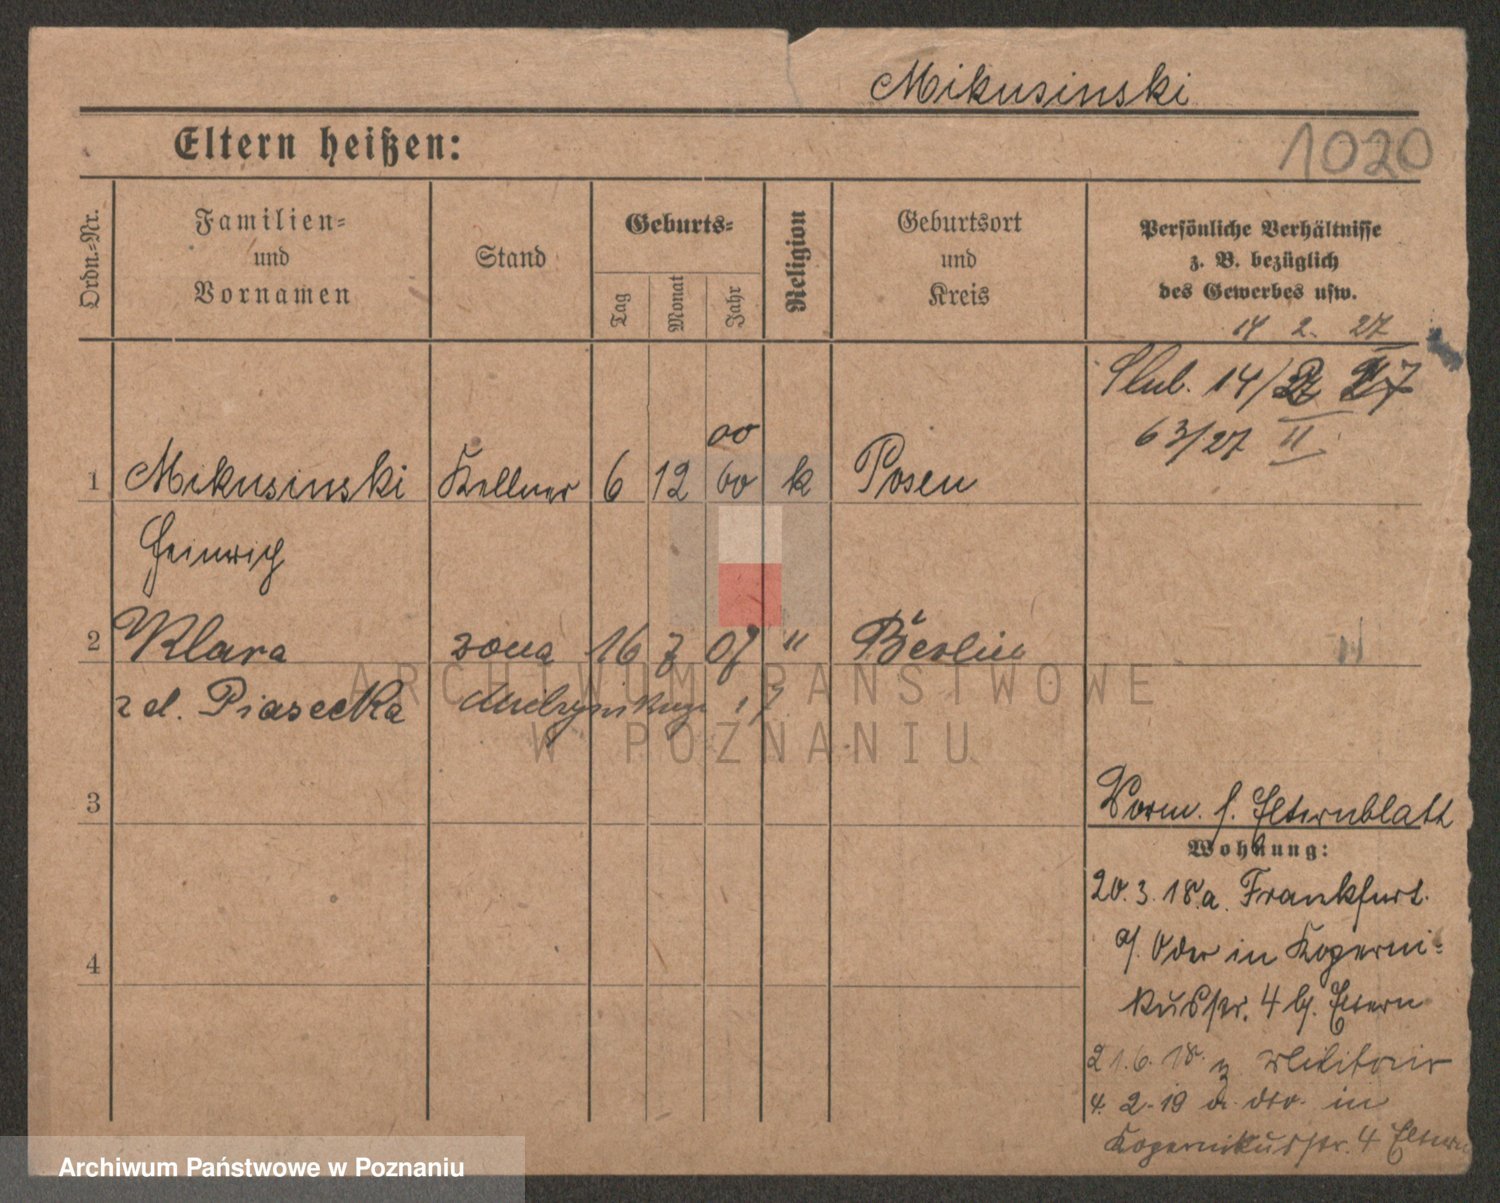 Mikusinski
1020
Eltern heißen:
Ordn.-Nr.
Familien-
und
Vornamen
Stand
Geburts-
Tag
Monat
Jahr
Religion
Geburtsort
und
Kreis
Persönliche Verhältnisse
z. B. bezüglich
des Gewerbes usw.
14 2. 27
Slub. 14/2 27
63/27 II
00
1 Mikusinski Kellner 6 12 00 k Posen
Heinrich
2 Klara żona 16 7 07 " Berlin
z d. Piasecka
3
Vorm. s. Elternblatt
Wohnung:
20.3.18. a. Frankfurt
a/ Oder in Koperni-
kusstr. 4 b/ Eltern
4
21.6.18. z Militair
4.2.19 a. dto. in
Kopernikusstr. 4 Eltern
ARCHIWUM PAŃSTWOWE
W POZNANIU
Archiwum Państwowe w Poznaniu